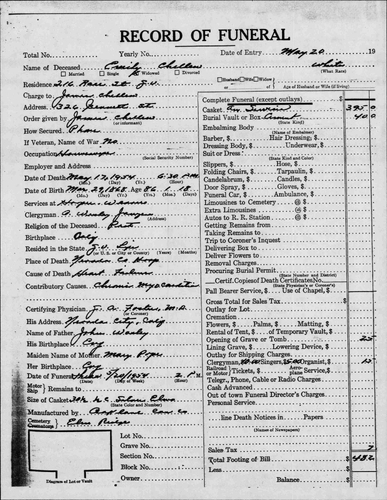 RECORD OF FUNERAL
Total No. Yearly No. Date of Entry May 20 19
Name of Deceased Chellew White
(What Race)
Married Single Widowed Divorced
Residence 216 Race St. G.V. Husband Wife Widow
Age of Husband or Wife (if living)
Charge to James Chellew
Address 326 Bennett St.
Order given by James Chellew
How Secured Phone
If Veteran, of War No
Occupation Housewife
(Social Security Number)
Employer and Address
Date of Death May 17, 1954 6:30 P.M.
(Mo.) (Day) (Year) (Hour)
Date of Birth Mar. 29, 1868 Age 86 1 18
(Mo.) (Day) (Year) (Yr.) (Mo.) (Days)
Services at Hooper Weaver
Clergyman Wesley
Religion of the Deceased Prot.
Birthplace Eng
Resided in the State
(or U.S. or City or County) (Years) (Months)
Place of Death Nevada Co Hosp
Cause of Death Heart Failure
Contributory Causes Chronic Myocarditis
Certifying Physician M.D.
His Address Nevada City, Calif
Name of Father John Wesley
His Birthplace Eng
Maiden Name of Mother Mary Pope
Her Birthplace Eng
Date of Funeral 1954 2 P.M.
(Date) (Day of Week)
Motor Ship Remains to
Size of Casket
(State Color and Number)
Manufactured by
Cemetery Crematory Elm Ridge
Lot No.
Grave No.
Section No.
Block No.
Owner
Diagram of Lot or Vault
Complete Funeral (except outlays)
Casket Service 395 0
Burial Vault or Box Cement 40 0
(State Kind)
Embalming Body
(Name of Embalmer)
Barber, Hair Dressing,
Dressing Body, Underwear,
Suit or Dress
(State Kind and Color)
Slippers, Hose,
Folding Chairs, Tarpaulin,
Candelabrum, Candles,
Door Spray, Gloves,
Funeral Car, Ambulance,
Limousines to Cemetery @ $
Extra Limousines @ $
Autos to R. R. Station @ $
Getting Remains from
Taking Remains to
Trip to Coroner's Inquest
Delivering Box to
Deliver Flowers to
Removal Charges
Procuring Burial Permit
Certif. Copies of Death Certificates No.
(State Physician's or Coroner's)
Pall Bearer Service, Use of Chapel,
Gross Total for Sales Tax
Outlay for Lot
Cremation
Flowers, Palms, Matting,
Rental of Tent, of Temporary Vault,
Opening of Grave or Tomb 25
Lining Grave, Lowering Device,
Outlay for Shipping Charges
Clergyman, Singers, Organist, 15
Railroad or Motor Tickets, Aeroplane Service,
Telegr., Phone, Cable or Radio Charges
Cash Advanced
Out of town Funeral Director's Charges
Personal Service
line Death Notices in Papers
(Names of Newspapers)
Sales Tax 7
Total Footing of Bill 482
Less
Balance